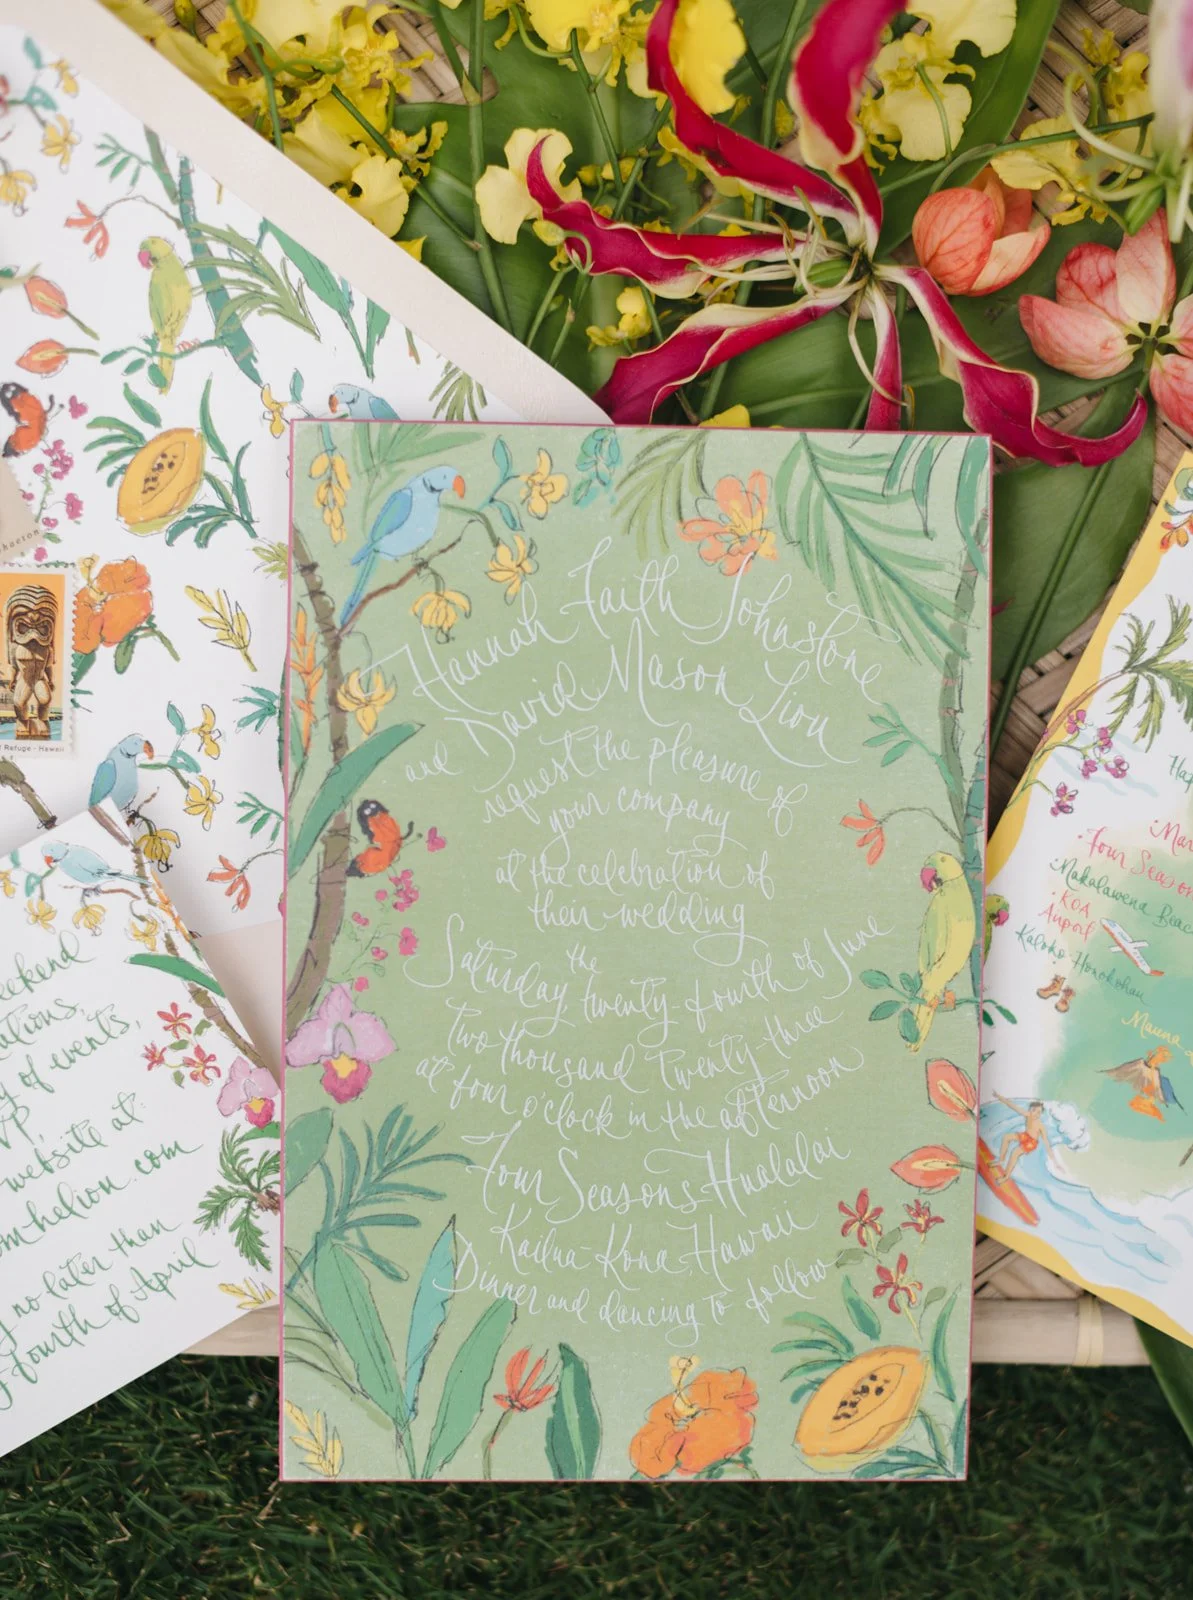 Hannah Faith Johnstone
and David Mason Liou
request the pleasure of
your company
at the celebration of
their wedding
Saturday, the twenty-fourth of June
two thousand twenty-three
at four o'clock in the afternoon
Four Seasons Hualalai
Kailua-Kona, Hawaii
Dinner and dancing to follow
phaeton
f Refuge - Hawaii
of events,
website at:
helion.com
no later than
fourth of April
Four Season
Makalawena Beac
KOA
Airport
Kaloko-Honokohau
Mauna